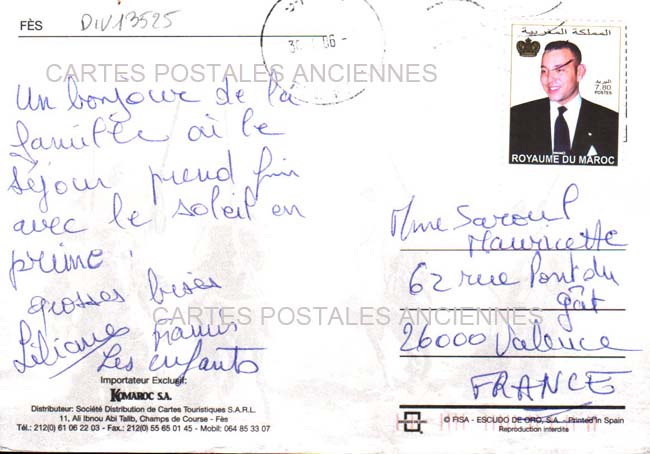 FÈS
DIV13525
30 06
المملكة المغربية
البريد
7,80
POSTES
ROYAUME DU MAROC
CARTES POSTALES ANCIENNES
Un bonjour de la
famille où le
séjour prend fin
avec le soleil en
prime.
grosses bises
Liliane
Les enfants
Mme Saroul
Mauricette
62 rue Pont du
gât
26000 Valence
FRANCE
CARTES POSTALES ANCIENNES
Importateur Exclusif:
KOMAROC S.A.
Distributeur: Société Distribution de Cartes Touristiques S.A.R.L.
11, Ali Ibnou Abi Talib, Champs de Course - Fès
Tél.: 212(0) 61 06 22 03 - Fax.: 212(0) 55 65 01 45 - Mobil: 064 85 33 07
© FISA - ESCUDO DE ORO, S.A. - Printed in Spain
Reproduction interdite